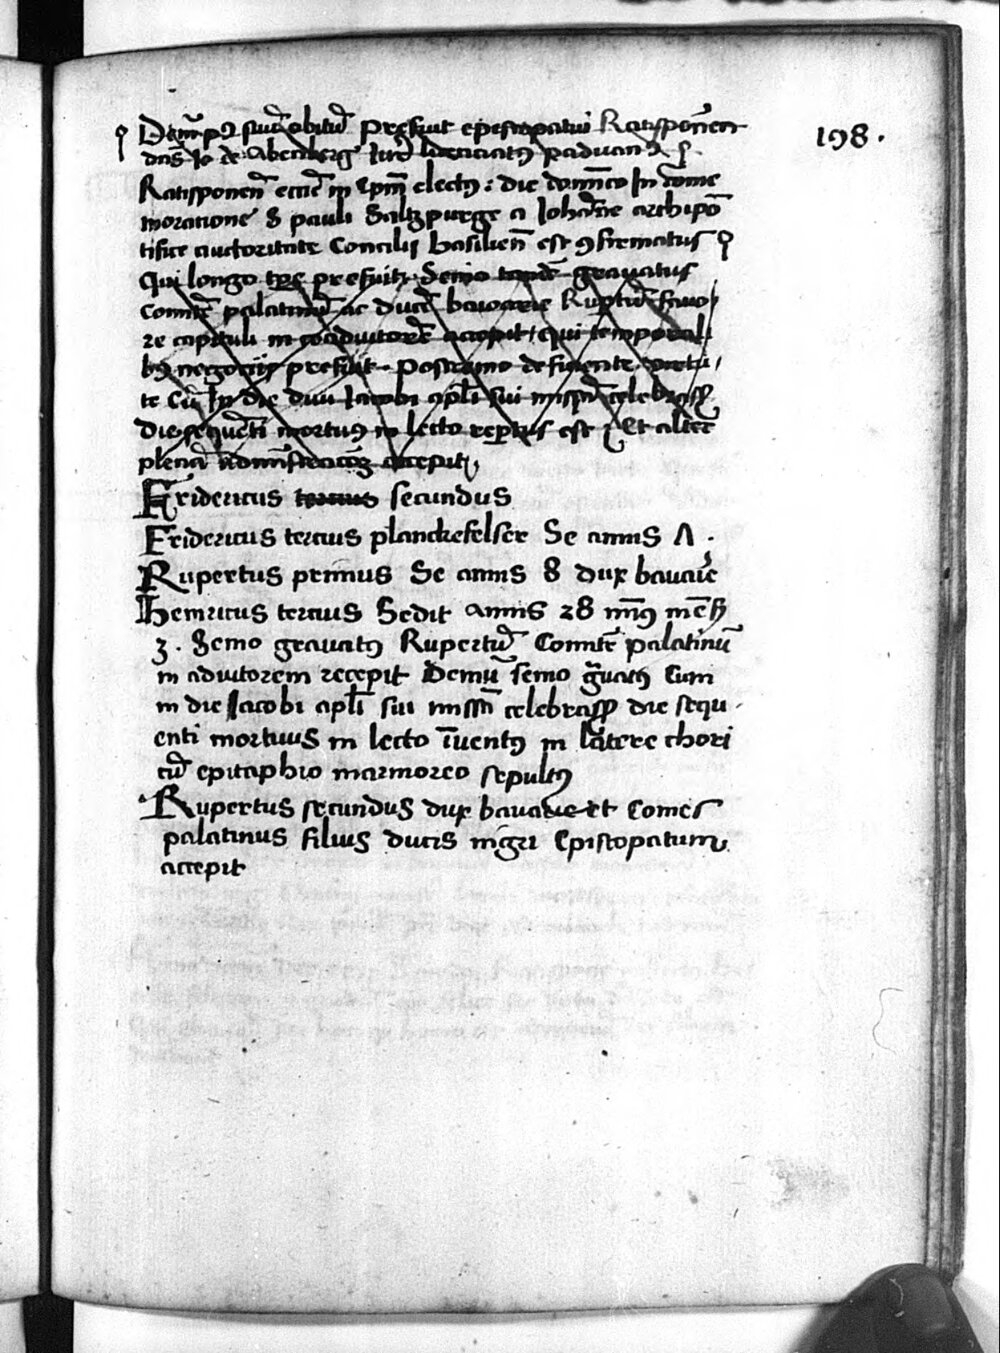 198.
Demū p9 suū obitū prefuit episcopatui Ratisponen̄
dn̄s Jo de Abenberg iurē licenciatus paduan9
Ratisponen̄ eccē in Epm̄ electus : die domīco In come
moratione S pauli Saltzpurge a Johāne archipō
tifice auctoritate Concilij basilien̄ est 9firmatus
Qui longo tp̄e prefuit Senio tandē grauatus
Comitē palatinū ac ducē bauarie Ruptū fauo
re capituli in coadiutorē accepit qui temporali
b9 negocijs prefuit . Postremo deficiente virtu
te Cū In die diui Jacobi apl̄i sui missā celebrass
die sequēti mortu9 in lecto repertus est Et alter
plenā administracōꝫ accepit
Fridericus tercius secundus
Fridericus tercius planckefelser Se annis Λ .
Rupertus primus Se annis 8 dux bauaīe
Heinricus tercius Sedit annis 28 min9 mēß
3 . Senio grauat9 Rupertū Comitē palatinū
in adiutorem recepit Demū senio grauat9 Cum
in die Jacobi apl̄i sui missā celebrass die sequ
enti mortuus in lecto īuent9 in latere chori
cū epitaphio marmoreo sepult9
Rupertus secundus dux bauarie et Comes
palatinus filius ducis nigri Episcopatum
accepit